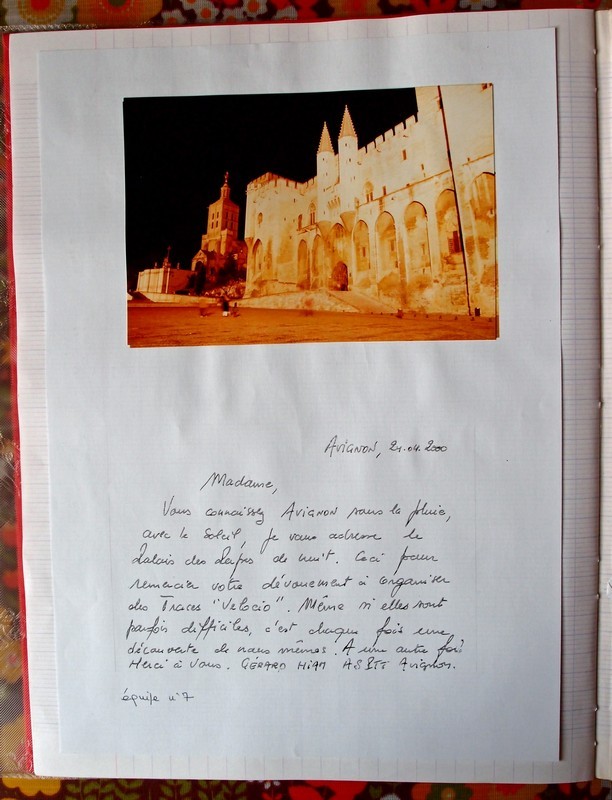 AVIGNON, 21.04.2000
Madame,
Vous connaissez AVIGNON sous la pluie,
avec le soleil, je vous adresse le
Palais des Papes de nuit. Ceci pour
remercier votre dévouement à organiser
des Traces "Velocio". Même si elles sont
parfois difficiles, c'est chaque fois une
découverte de nous mêmes. A une autre fois
Merci à Vous. GÉRARD HIAM ASPTT Avignon.
équipe n°7